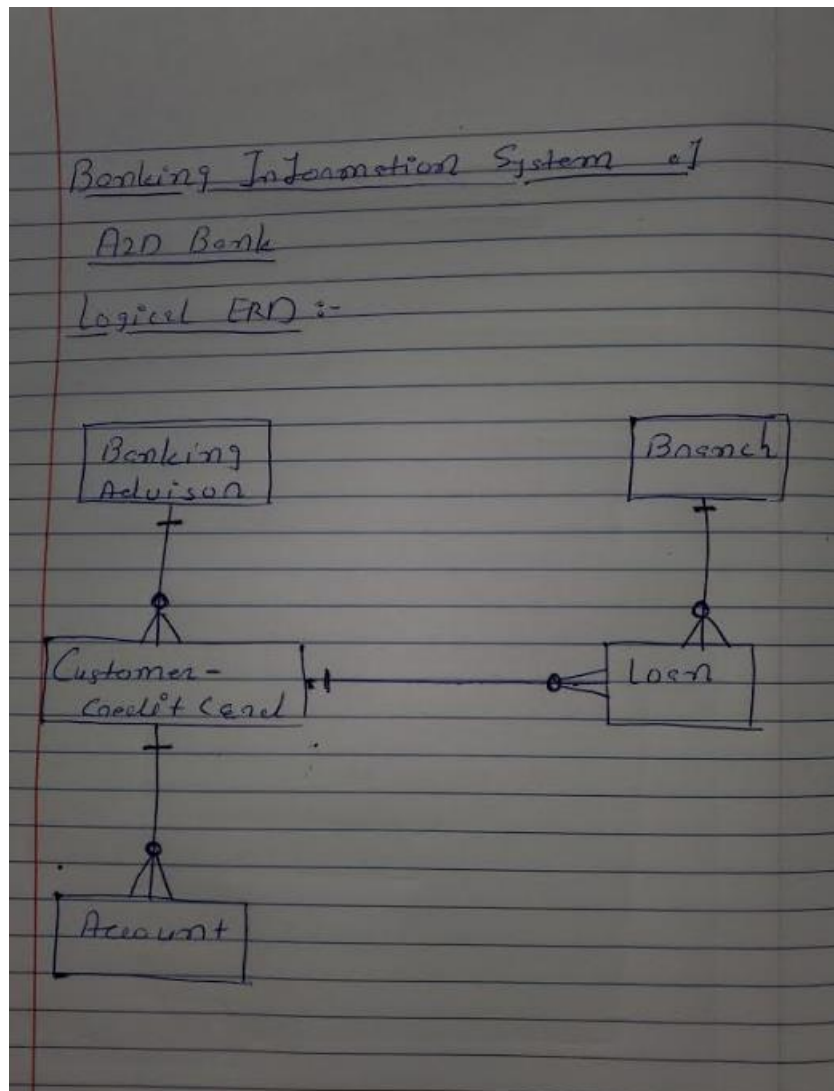 Banking Information System of
A2D Bank
Logical ERD :-
Banking
Advisor
Branch
Customer-
Credit Card
Loan
Account